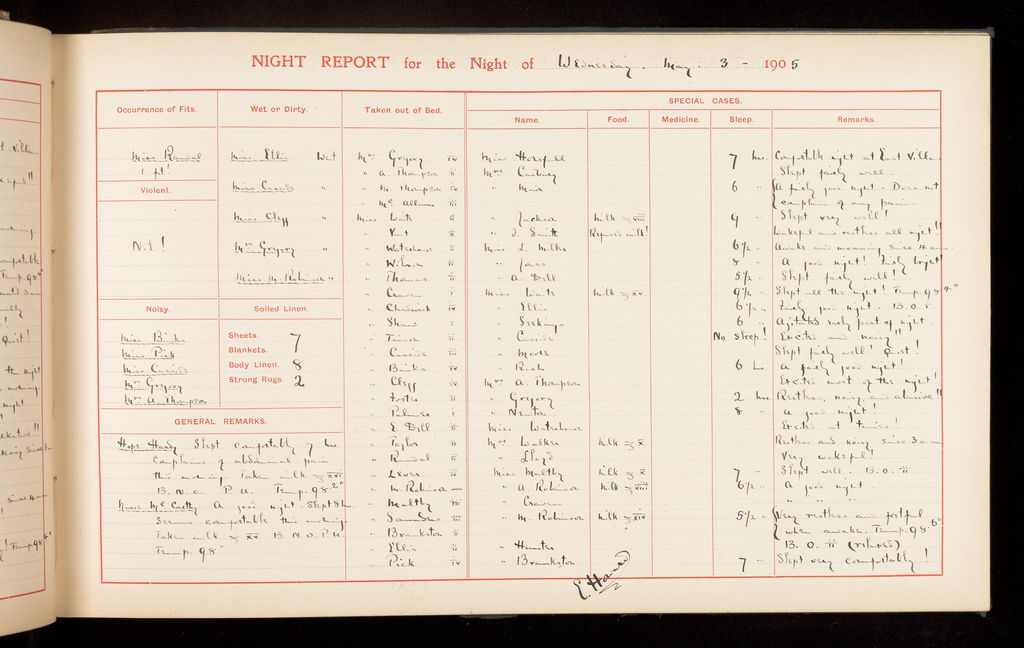 NIGHT REPORT for the Night of Wednesday. May. 3 - 1905
Occurrence of Fits.
Miss Randal
1 fit!
Violent.
Nil!
Noisy.
Miss Binks
Miss Pick
Miss Cassids
Mrs Gregory
Mrs A. Thompson
Wet or Dirty.
Miss Ellis Wet
Miss Cassids "
Miss Clegg "
Mrs Gregory "
Miss M. Robinson "
Soiled Linen.
Sheets. 7
Blankets.
Body Linen. 8
Strong Rugs. 2
GENERAL REMARKS.
Slept comfortably 7 hrs.
Complains of abdominal pain
this morning. Taken milk ℥ xvi
B. N. O. P. U. Temp. 98.2°
Nurse McCarthy A good night. Slept 8 hrs
Seems comfortable this morning
Taken milk ℥ xv B. N. O. P. U
Temp. 98°
Taken out of Bed.
Mrs Gregory iv
" A. Thompson iii
" M. Thompson iv
" Mc
Miss Waite ii
" Vint ii
" Waterhouse ii
" Wilson ii
" Thomas ii
" Craven i
" Chadwick iv
" Shaw i
"
" Cassids iii
" Binks iv
" Clegg ii
" Foster ii
" Palmer i
" E. Dell ii
" Taylor ii
" Randal ii
" Lever iii
" M. Robinson
" Maltby iii
" Saunders iii
" Brankston ii
" Ellis ii
" Pick iv
SPECIAL CASES.
Name. Food. Medicine. Sleep. Remarks.
Miss Horsfall 7 hrs. Comfortable night at East Villa.
Mrs Cadbury Slept fairly well.
" Muir 6 " A fairly good night. Does not
complain of any pain.
" Jackson Milk ℥ viii 9 " Slept very well!
" J. Smith Refused milk! Wakeful and restless all night!!
Miss L. Miller 6½ " Awake and moaning since 4 a.m.
" Jones 8 " A good night! Fairly bright!
" A. Dell 5½ " Slept fairly well!
Miss Waite Milk ℥ xv 9½ " Slept all the night! Temp. 98.4°
" Ellis 6½ " Fairly good night. B. O. ii
" Seekings 6 " Agitated early part of night.
" Cassids No sleep! Excited and noisy!!
" Moode Slept fairly well! Quiet!
" Rich 6 hrs. A fairly good night!
Mrs A. Thompson Excited most of the night!
" Gregory 2 hrs. Restless, noisy, and abusive!!
" Newton 8 " A good night!
Miss Waterhouse Excited at times!
Mrs Walker Milk ℥ x Restless and noisy since 3 a.m.
" Lloyd Very wakeful!
Miss Maltby Milk ℥ x 7 " Slept well. B. O. iii
" A. Robinson Milk ℥ viii 6½ " A good night.
" Craven " " "
" M. Robinson Milk ℥ xiv 5½ " Very restless and fretful
when awake. Temp. 98.6°
" Hunter B. O. ii (relaxed)
" Brankston 7 " Slept very comfortably!
E. Hared